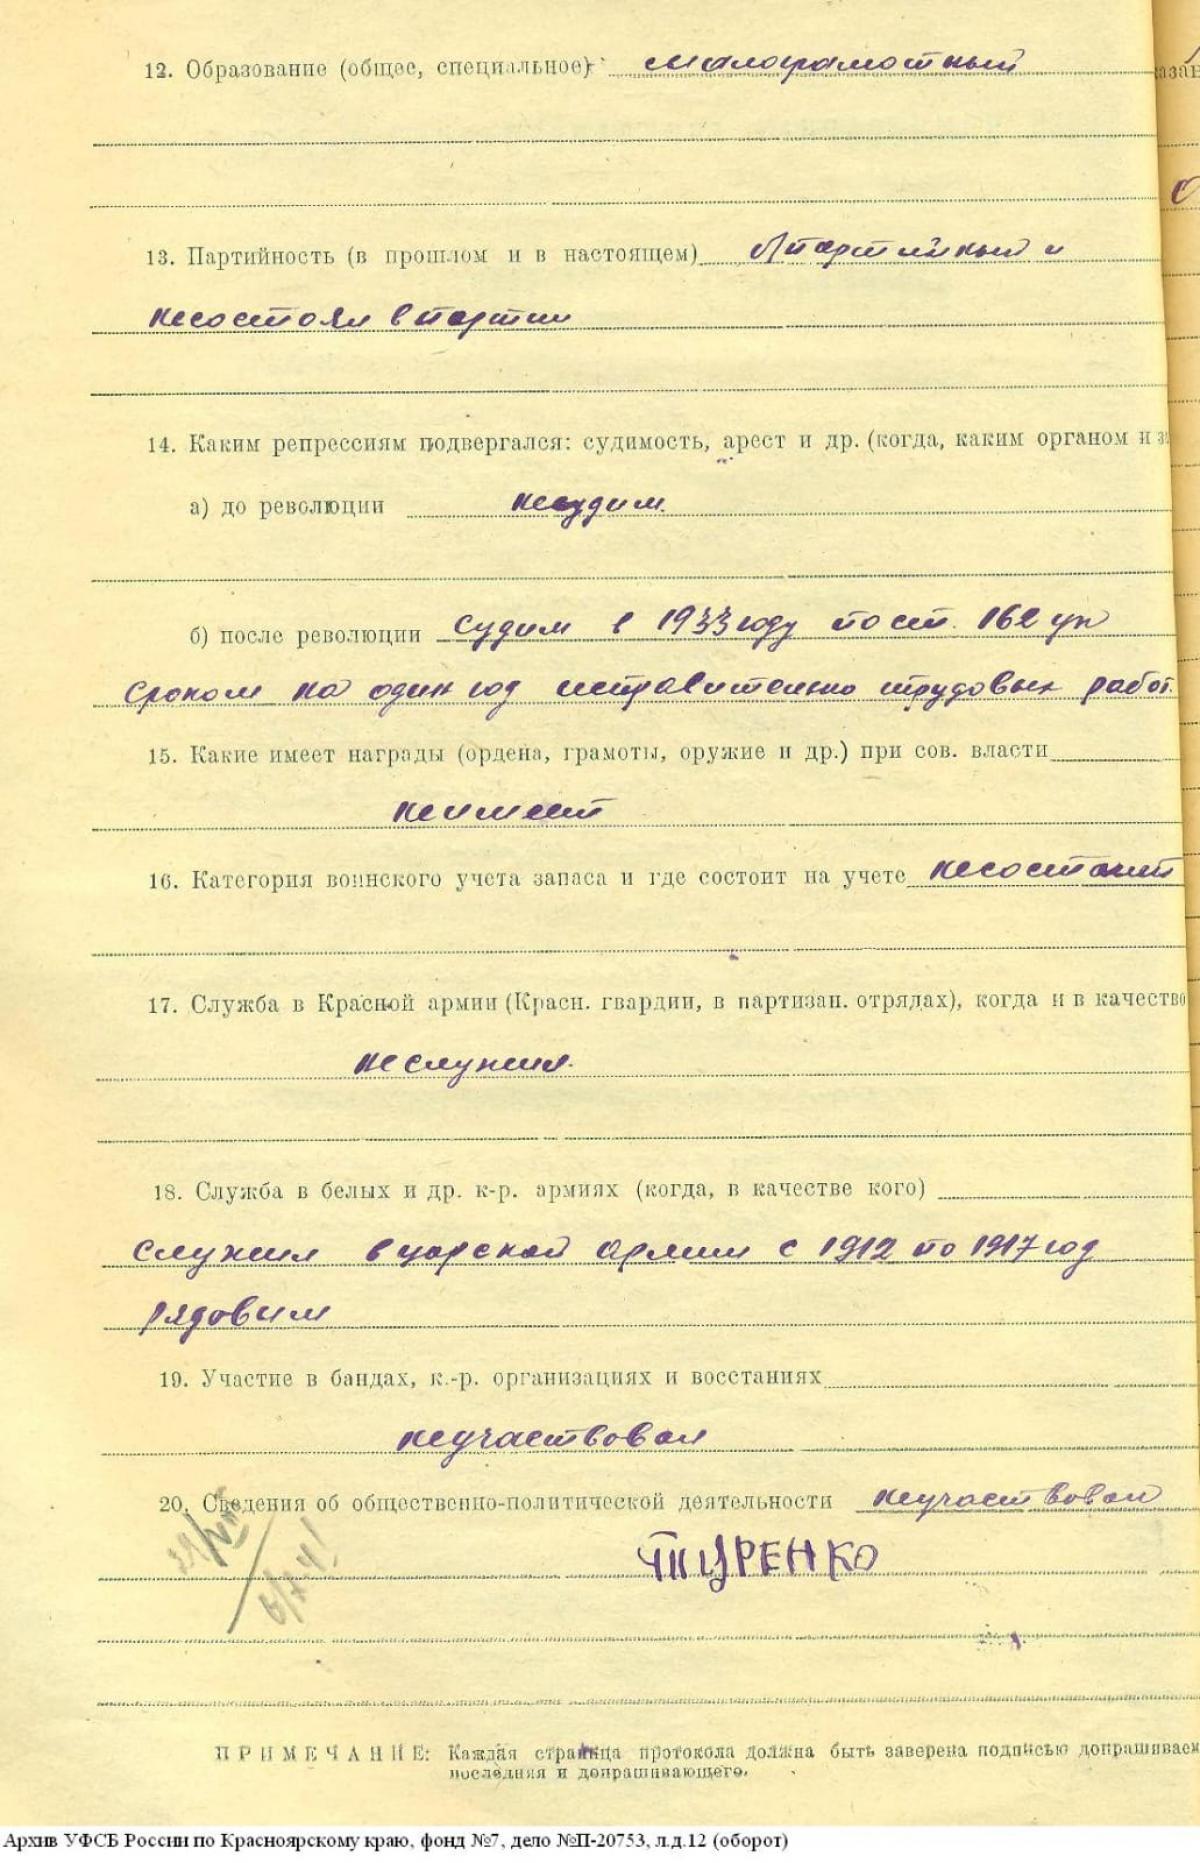 12. Образование (общее, специальное) малограмотный
13. Партийность (в прошлом и в настоящем) б/партийный и
несостоял в партии
14. Каким репрессиям подвергался: судимость, арест и др. (когда, каким органом и з
а) до революции несудим.
б) после революции судим в 1933 году по ст. 162 ук
сроком на один год исправительно трудовых работ.
15. Какие имеет награды (ордена, грамоты, оружие и др.) при сов. власти
неимеет
16. Категория воинского учета запаса и где состоит на учете несостоит
17. Служба в Красной армии (Красн. гвардии, в партизан. отрядах), когда и в качество
неслужил.
18. Служба в белых и др. к-р. армиях (когда, в качестве кого)
служил в царской армии с 1912 по 1917 год
рядовим
19. Участие в бандах, к.-р. организациях и восстаниях
неучаствовал
20. Сведения об общественно-политической деятельности неучаствовал
ПРИМЕЧАНИЕ: Каждая страница протокола должна быть заверена подписью допрашиваем
последняя и допрашивающего.
Архив УФСБ России по Красноярскому краю, фонд №7, дело №П-20753, л.д.12 (оборот)